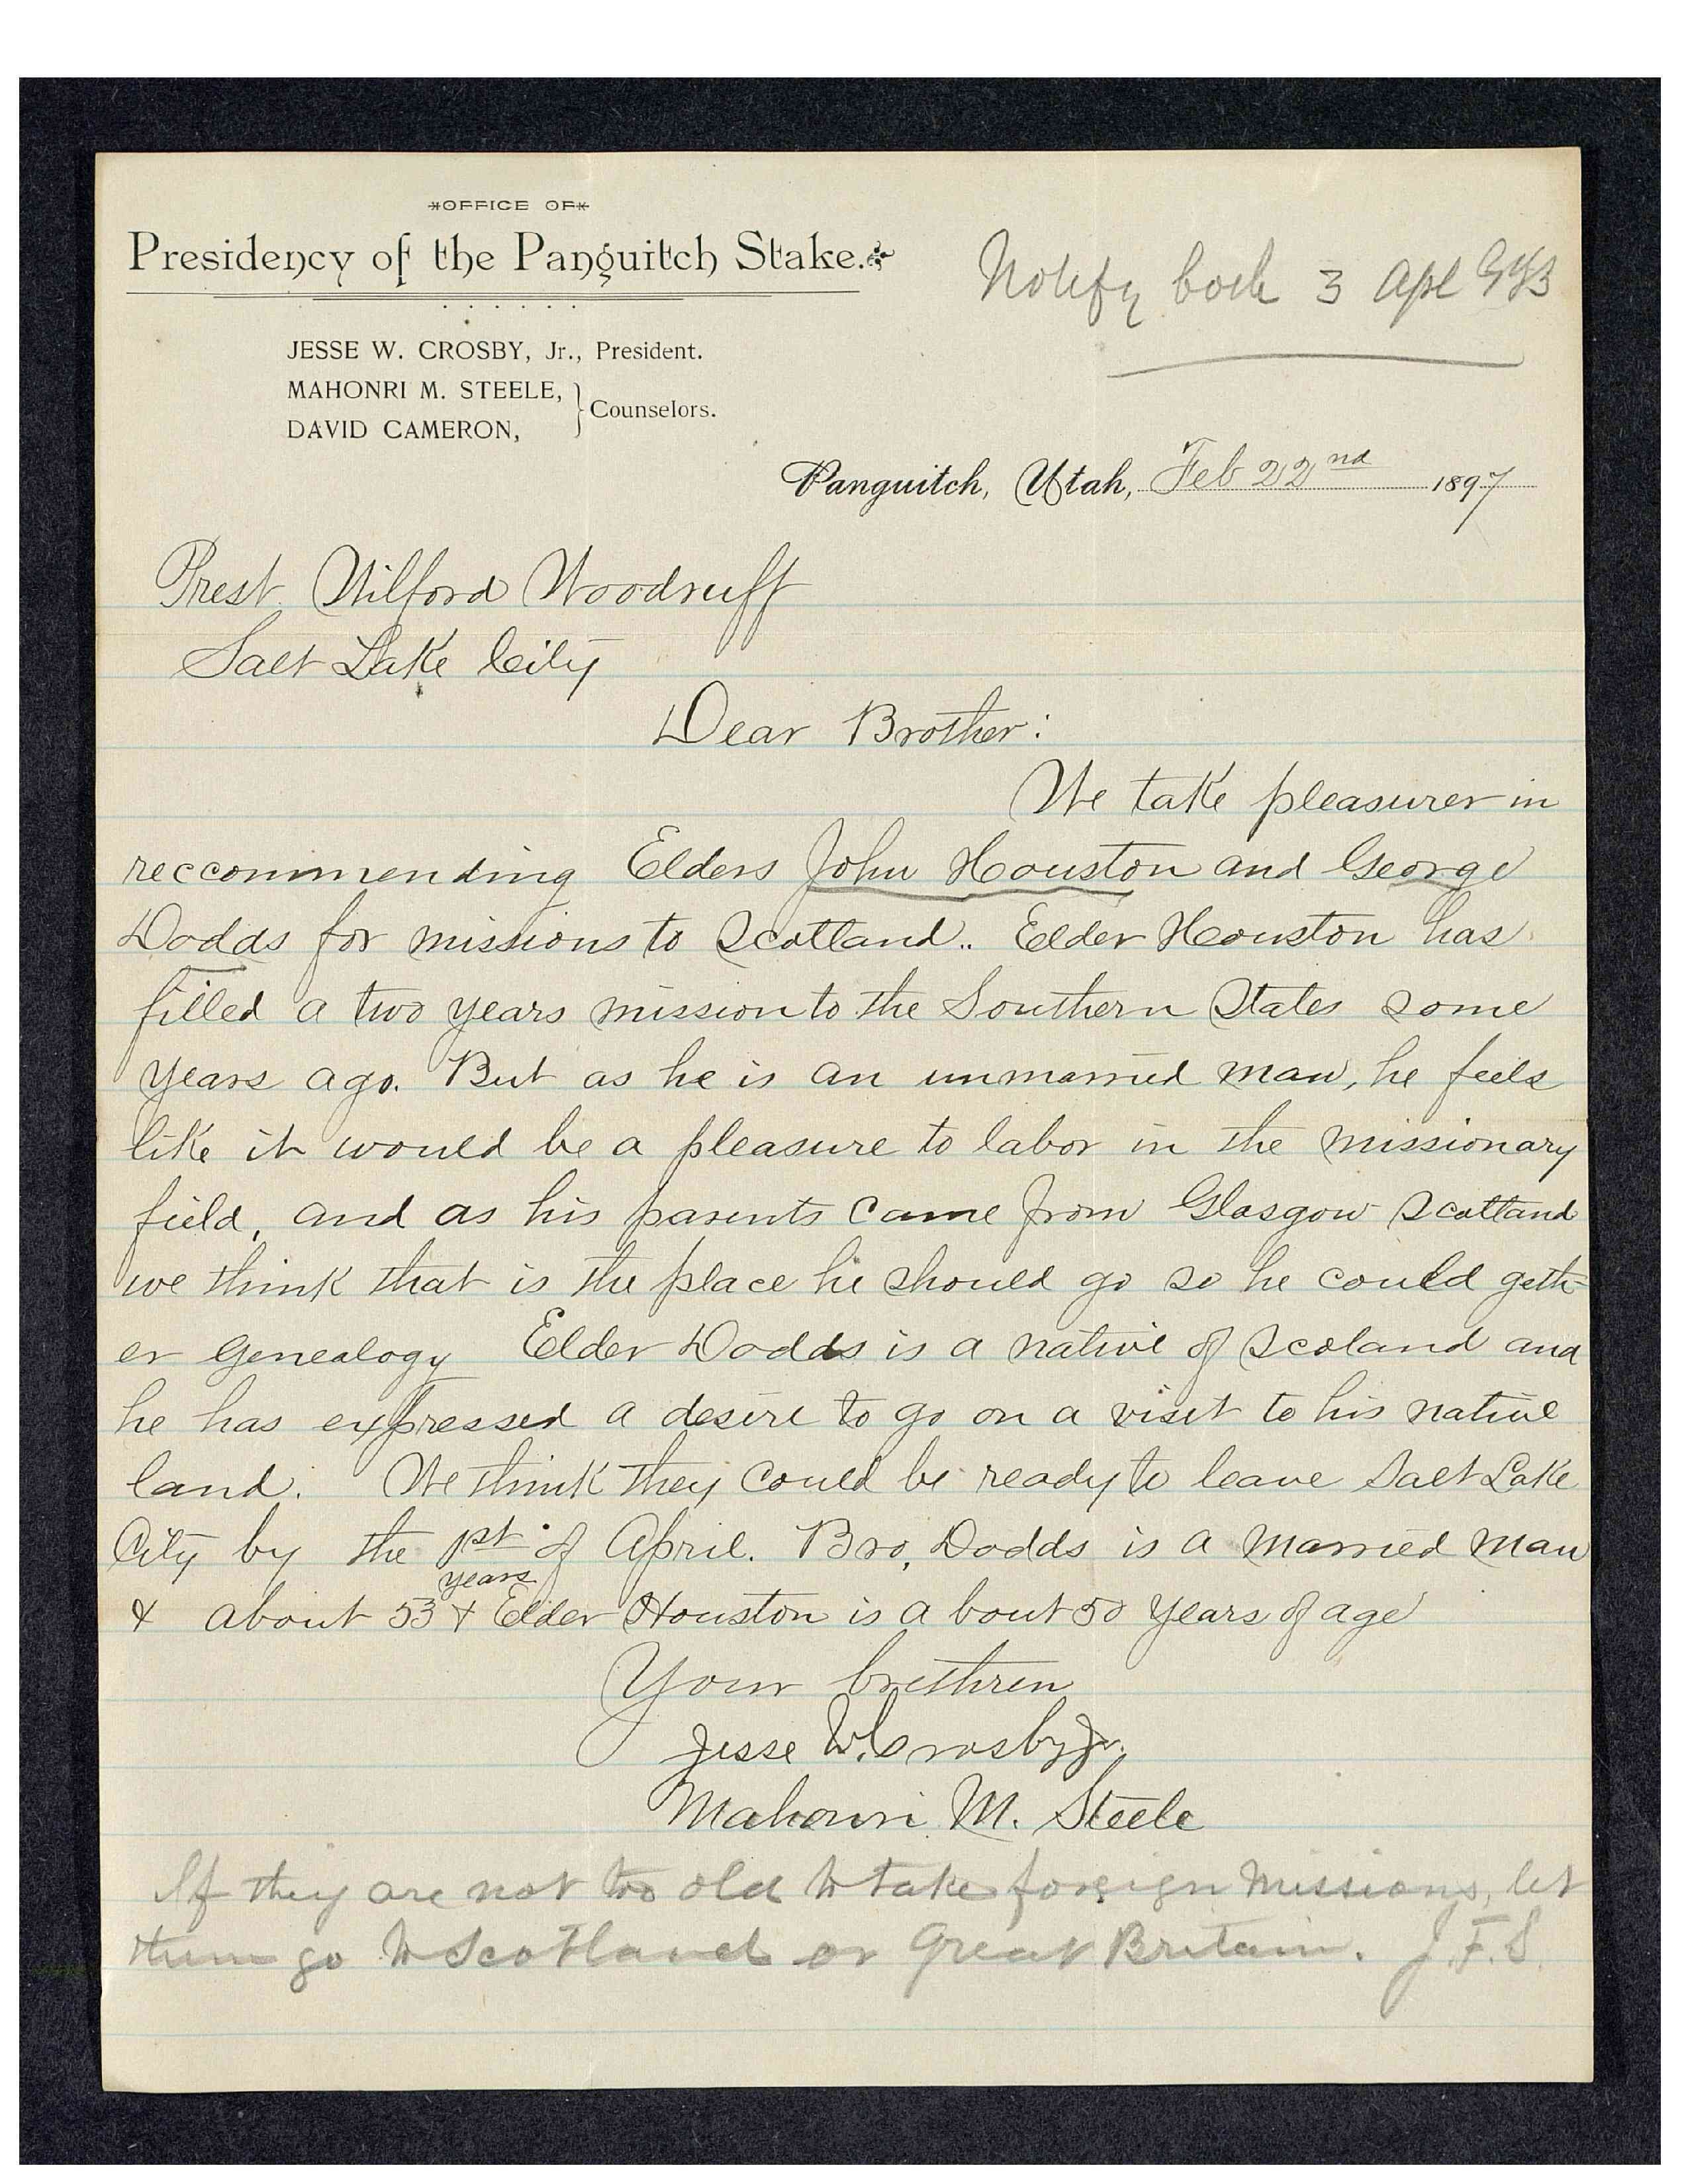 OFFICE OF
Presidency of the Panguitch Stake.
Notify both 3 Apl
JESSE W. CROSBY, Jr., President.
MAHONRI M. STEELE,
DAVID CAMERON,
Counselors.
Panguitch, Utah, Feb 22nd 1897
Prest. Wilford Woodruff
Salt Lake City
Dear Brother:
We take pleasurer in
reccommending Elders John Houston and George
Dodds for missions to Scotland.. Elder Houston has
filled a two years mission to the Southern States some
years ago. But as he is an unmarried man, he feels
like it would be a pleasure to labor in the missionary
field, and as his parents came from Glasgow Scotland
we think that is the place he should go so he could gath-
er Genealogy Elder Dodds is a native of Scoland and
he has expressed a desire to go on a visit to his native
land. We think they could be ready to leave Salt Lake
City by the 1st of April. Bro, Dodds is a married man
years
& about 53 & Elder Houston is a bout 50 years of age
Your brethren
Jesse W. Crosby Jr.
Mahonri M. Steele
If they are not too old to take foreign missions, let
them go to Scotland or Great Britain. J.F.S.